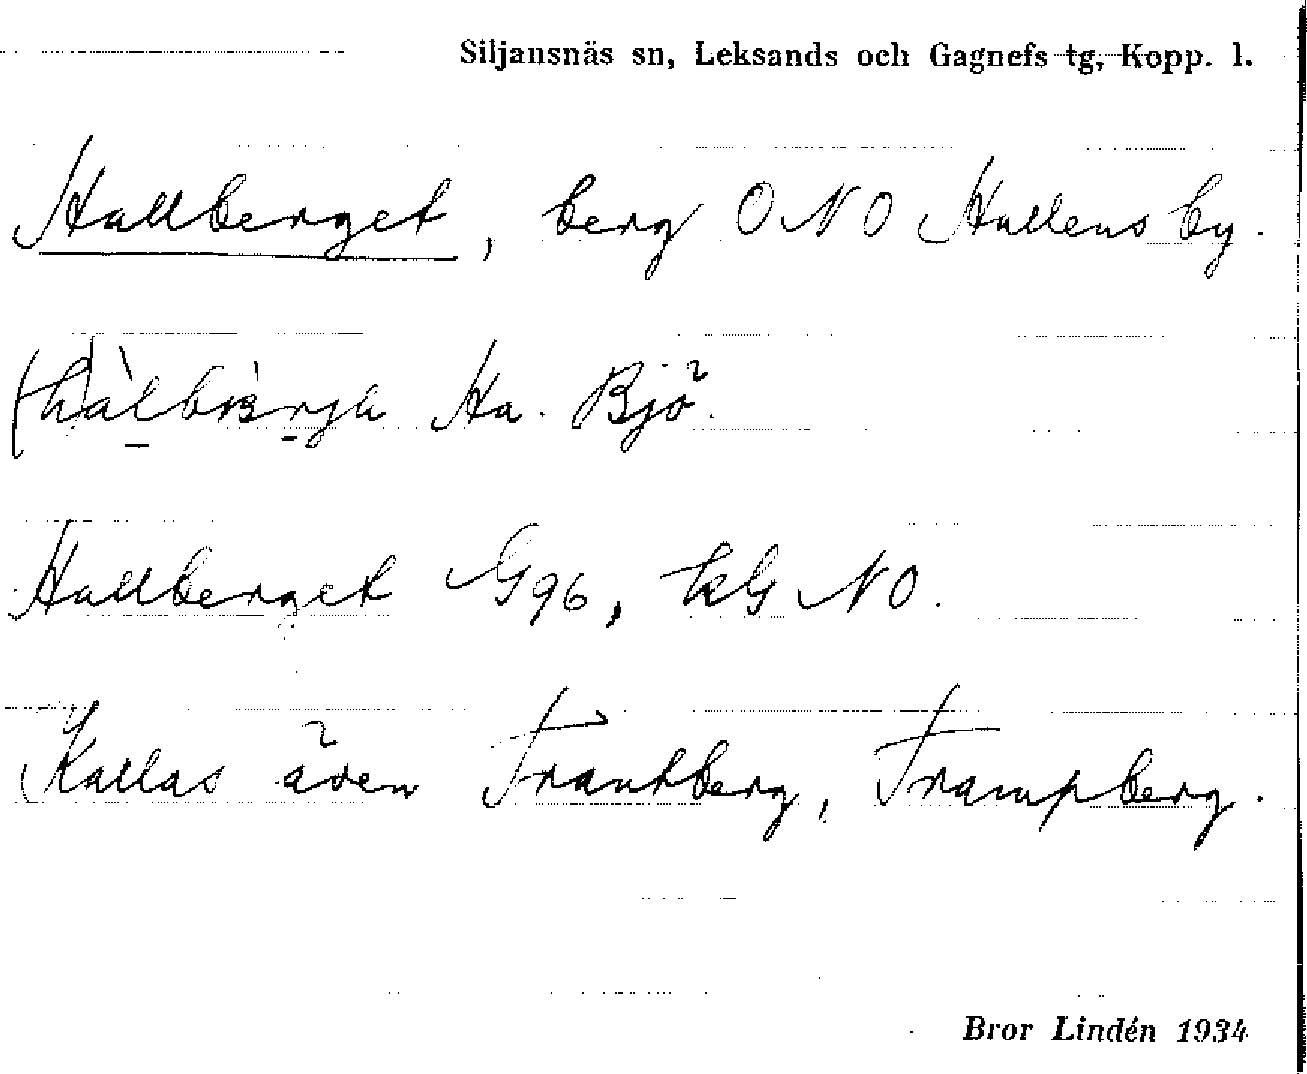 Siljansnäs sn, Leksands och Gagnefs tg, Kopp. l.
Hallberget, berg ONO Hallens by.
Ha. Bjö.
Hallberget G96, hG NO.
Kallas även Frantberg, Frampberg.
Bror Lindén 1934